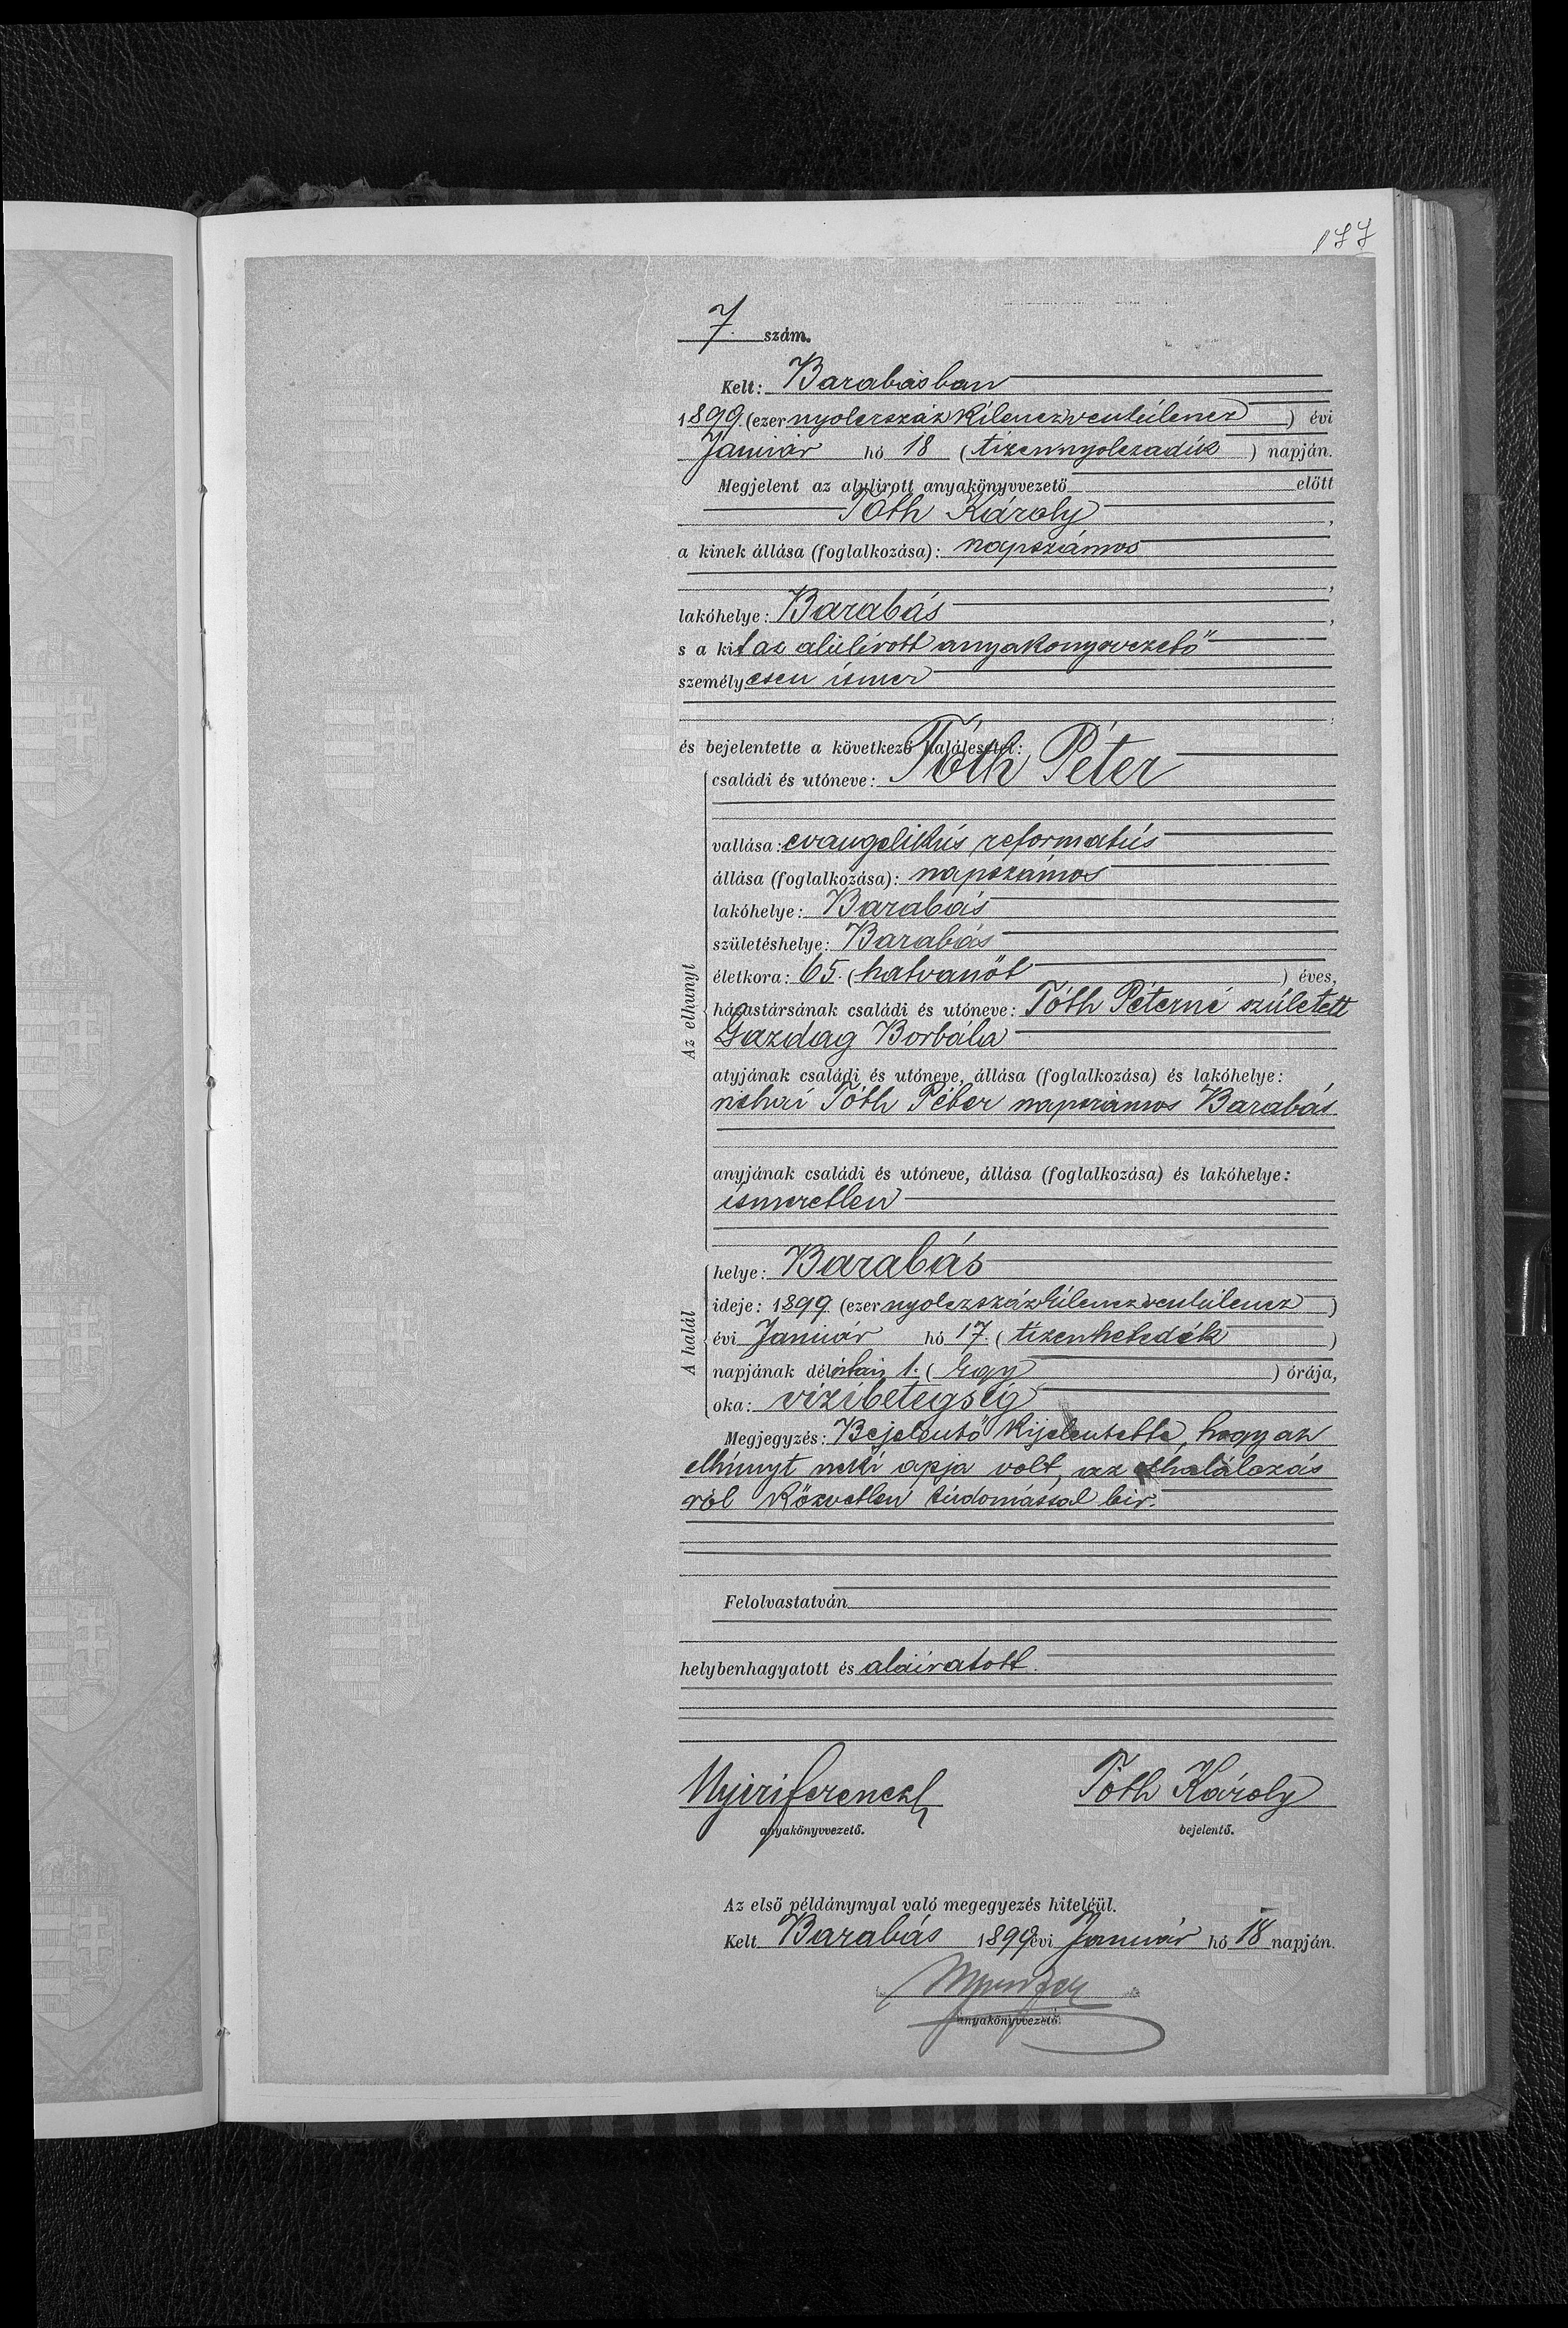 177
7. szám.
Kelt: Barabásban
1899. (ezer nyolczszáz kilenczvenkilencz) évi
Január hó 18 (tizennyolczadik) napján.
Megjelent az alulirott anyakönyvvezető előtt
Tóth Károly,
a kinek állása (foglalkozása): napszámos
,
lakóhelye: Barabás,
s a kit az alúlírott anyakönyvvezető
személyesen ismer
és bejelentette a következő halálesetet:
Az elhunyt
családi és utóneve: Tóth Péter
vallása: evangelikús reformatús
állása (foglalkozása): napszámos
lakóhelye: Barabás
születéshelye: Barabás
életkora: 65. (hatvanöt) éves,
házastársának családi és utóneve: Tóth Péterné született
Gazdag Borbála
atyjának családi és utóneve, állása (foglalkozása) és lakóhelye:
néhai Tóth Péter napszámos Barabás
anyjának családi és utóneve, állása (foglalkozása) és lakóhelye:
ismeretlen
A halál
helye: Barabás
ideje: 1899. (ezer nyolczszáz kilenczvenkilencz)
évi Január hó 17. (tizenhetedik)
napjának délután 1. (Egy) órája,
oka: vizibetegség
Megjegyzés: Bejelentő kijelentette, hogy az
elhúnyt neki apja volt, az elhalálozás
ról közvetlen túdomással bir.
Felolvastatván
helybenhagyatott és aláiratott.
Nyiri Ferencz
Tóth Károly
anyakönyvvezető.
bejelentő.
Az első példánynyal való megegyezés hiteléül.
Kelt Barabás 1899 évi Január hó 18 napján.
anyakönyvvezető.